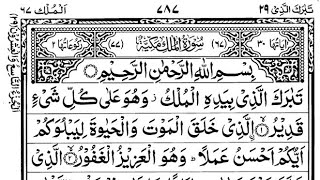 تَبٰرَكَ الَّذِیْ ۲۹ ۷۸۷ اَلْمُلْك ۶۷
اٰیَاتُهَا ۳۰ (۶۷) سُوْرَةُ الْمُلْكِ مَكِّیَّةٌ (۷۷) رُكُوْعَاتُهَا ۲
بِسْمِ اللّٰهِ الرَّحْمٰنِ الرَّحِیْمِ
تَبٰرَكَ الَّذِیْ بِیَدِهِ الْمُلْكُ وَهُوَ عَلٰی كُلِّ شَیْءٍ
قَدِیْرُۙ ۝۱ الَّذِیْ خَلَقَ الْمَوْتَ وَالْحَیٰوةَ لِیَبْلُوَكُمْ
اَیُّكُمْ اَحْسَنُ عَمَلًا ؕ وَهُوَ الْعَزِیْزُ الْغَفُوْرُۙ ۝۲ الَّذِیْ